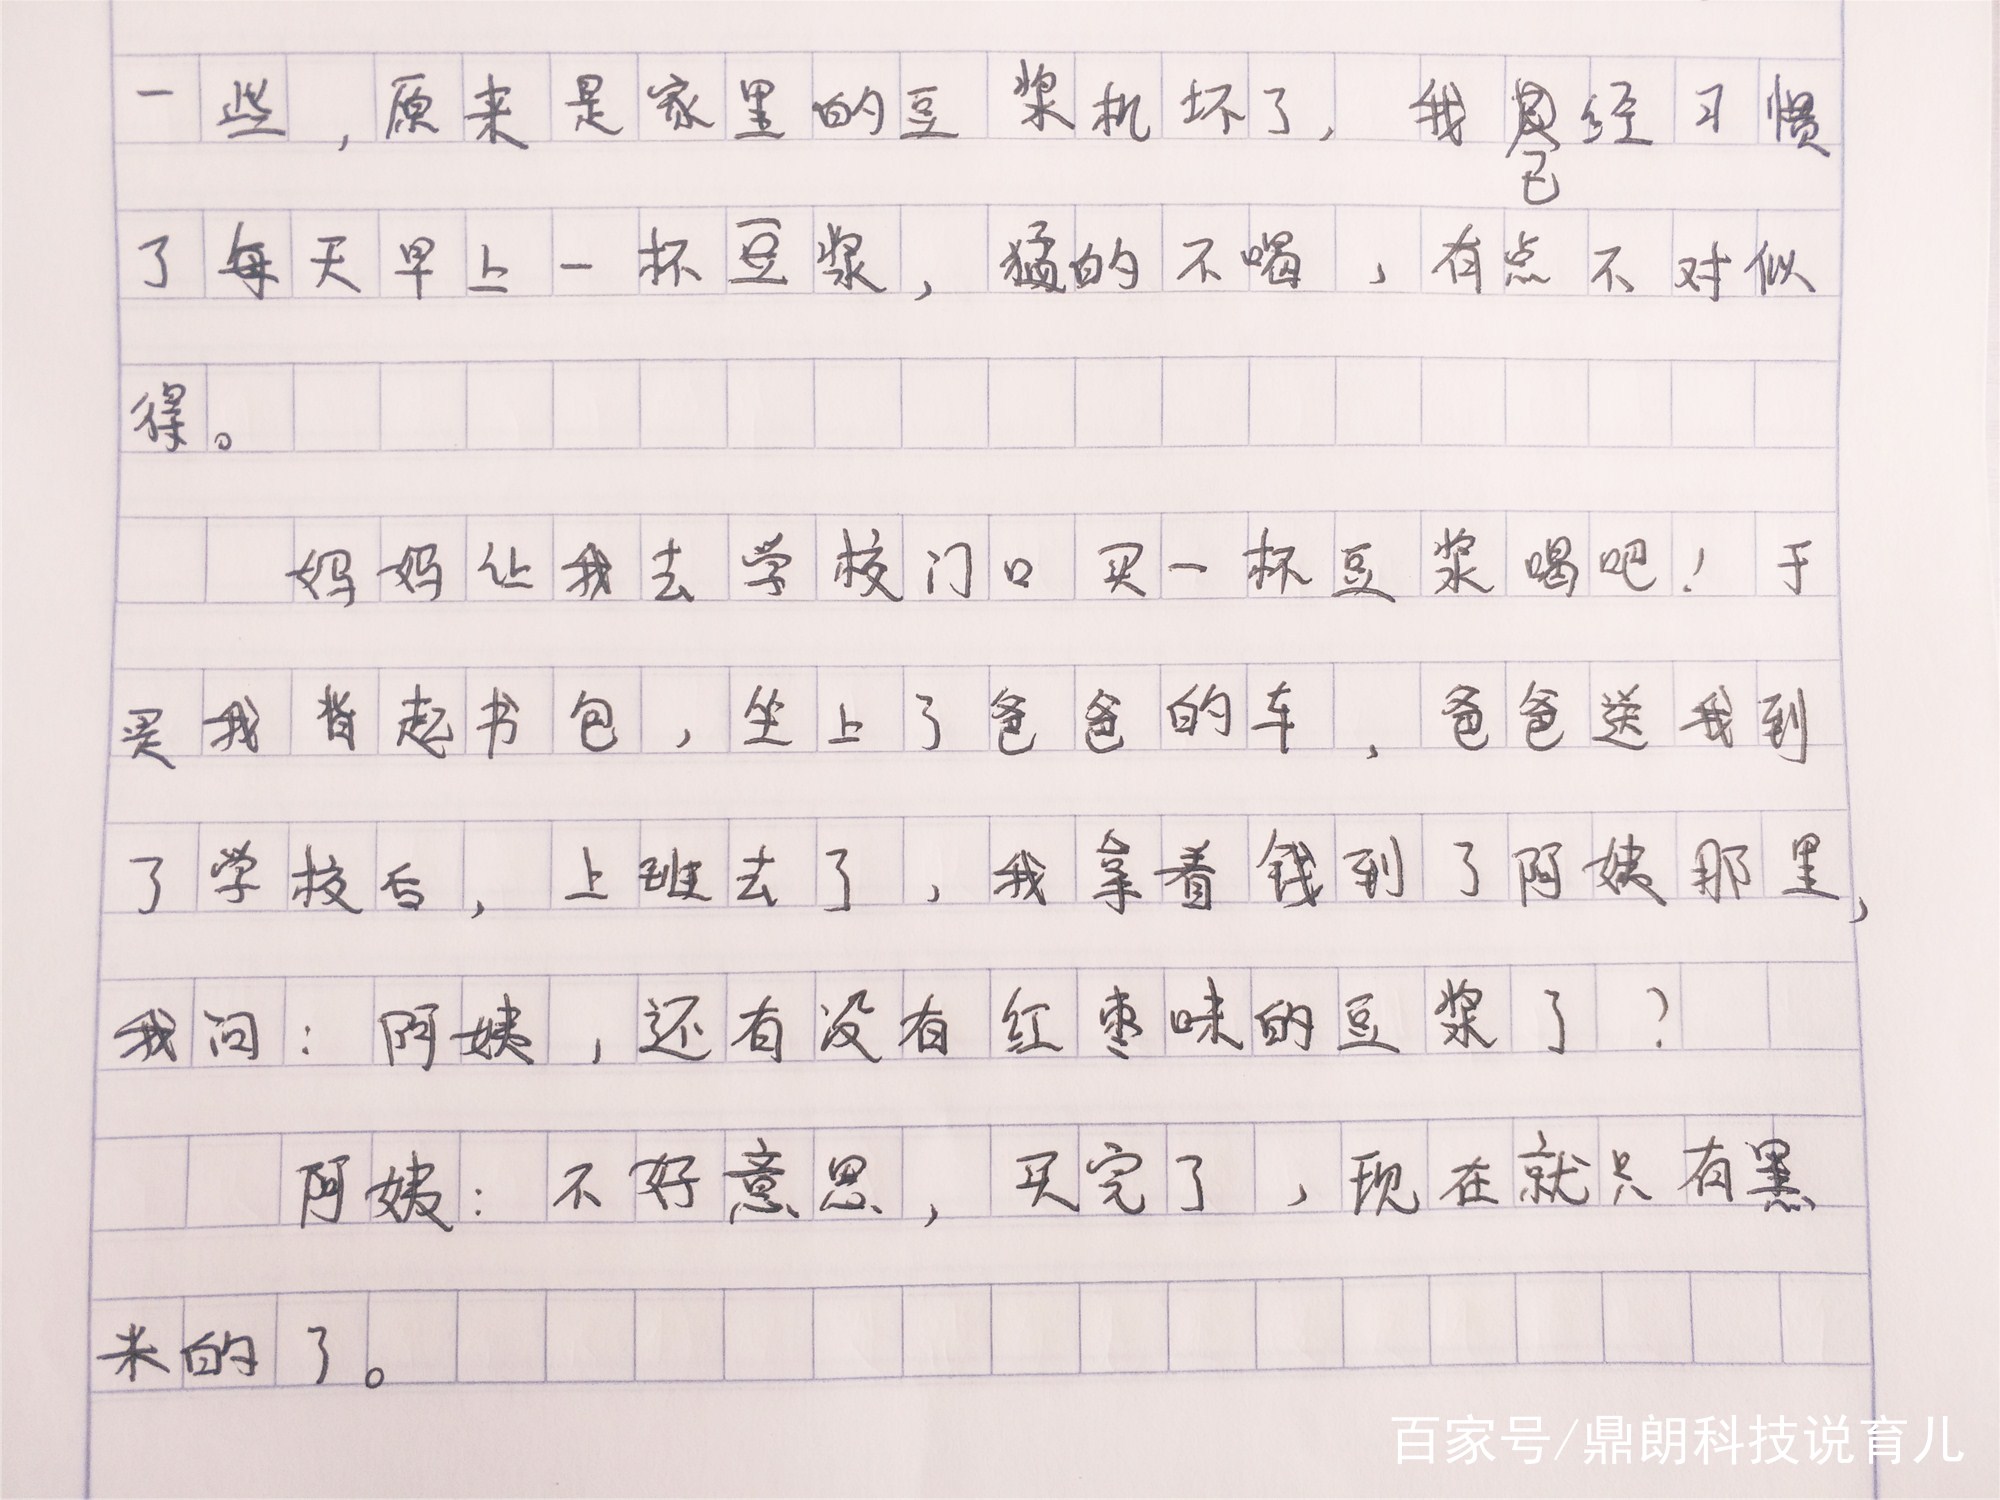 一些，原来是家里的豆浆机坏了，我已经习惯
了每天早上一杯豆浆，猛的不喝，有点不对似
得。
妈妈让我去学校门口买一杯豆浆喝吧！于
是我背起书包，坐上了爸爸的车，爸爸送我到
了学校后，上班去了，我拿着钱到了阿姨那里，
我问：阿姨，还有没有红枣味的豆浆了？
阿姨：不好意思，买完了，现在就只有黑
米的了。
百家号/鼎朗科技说育儿